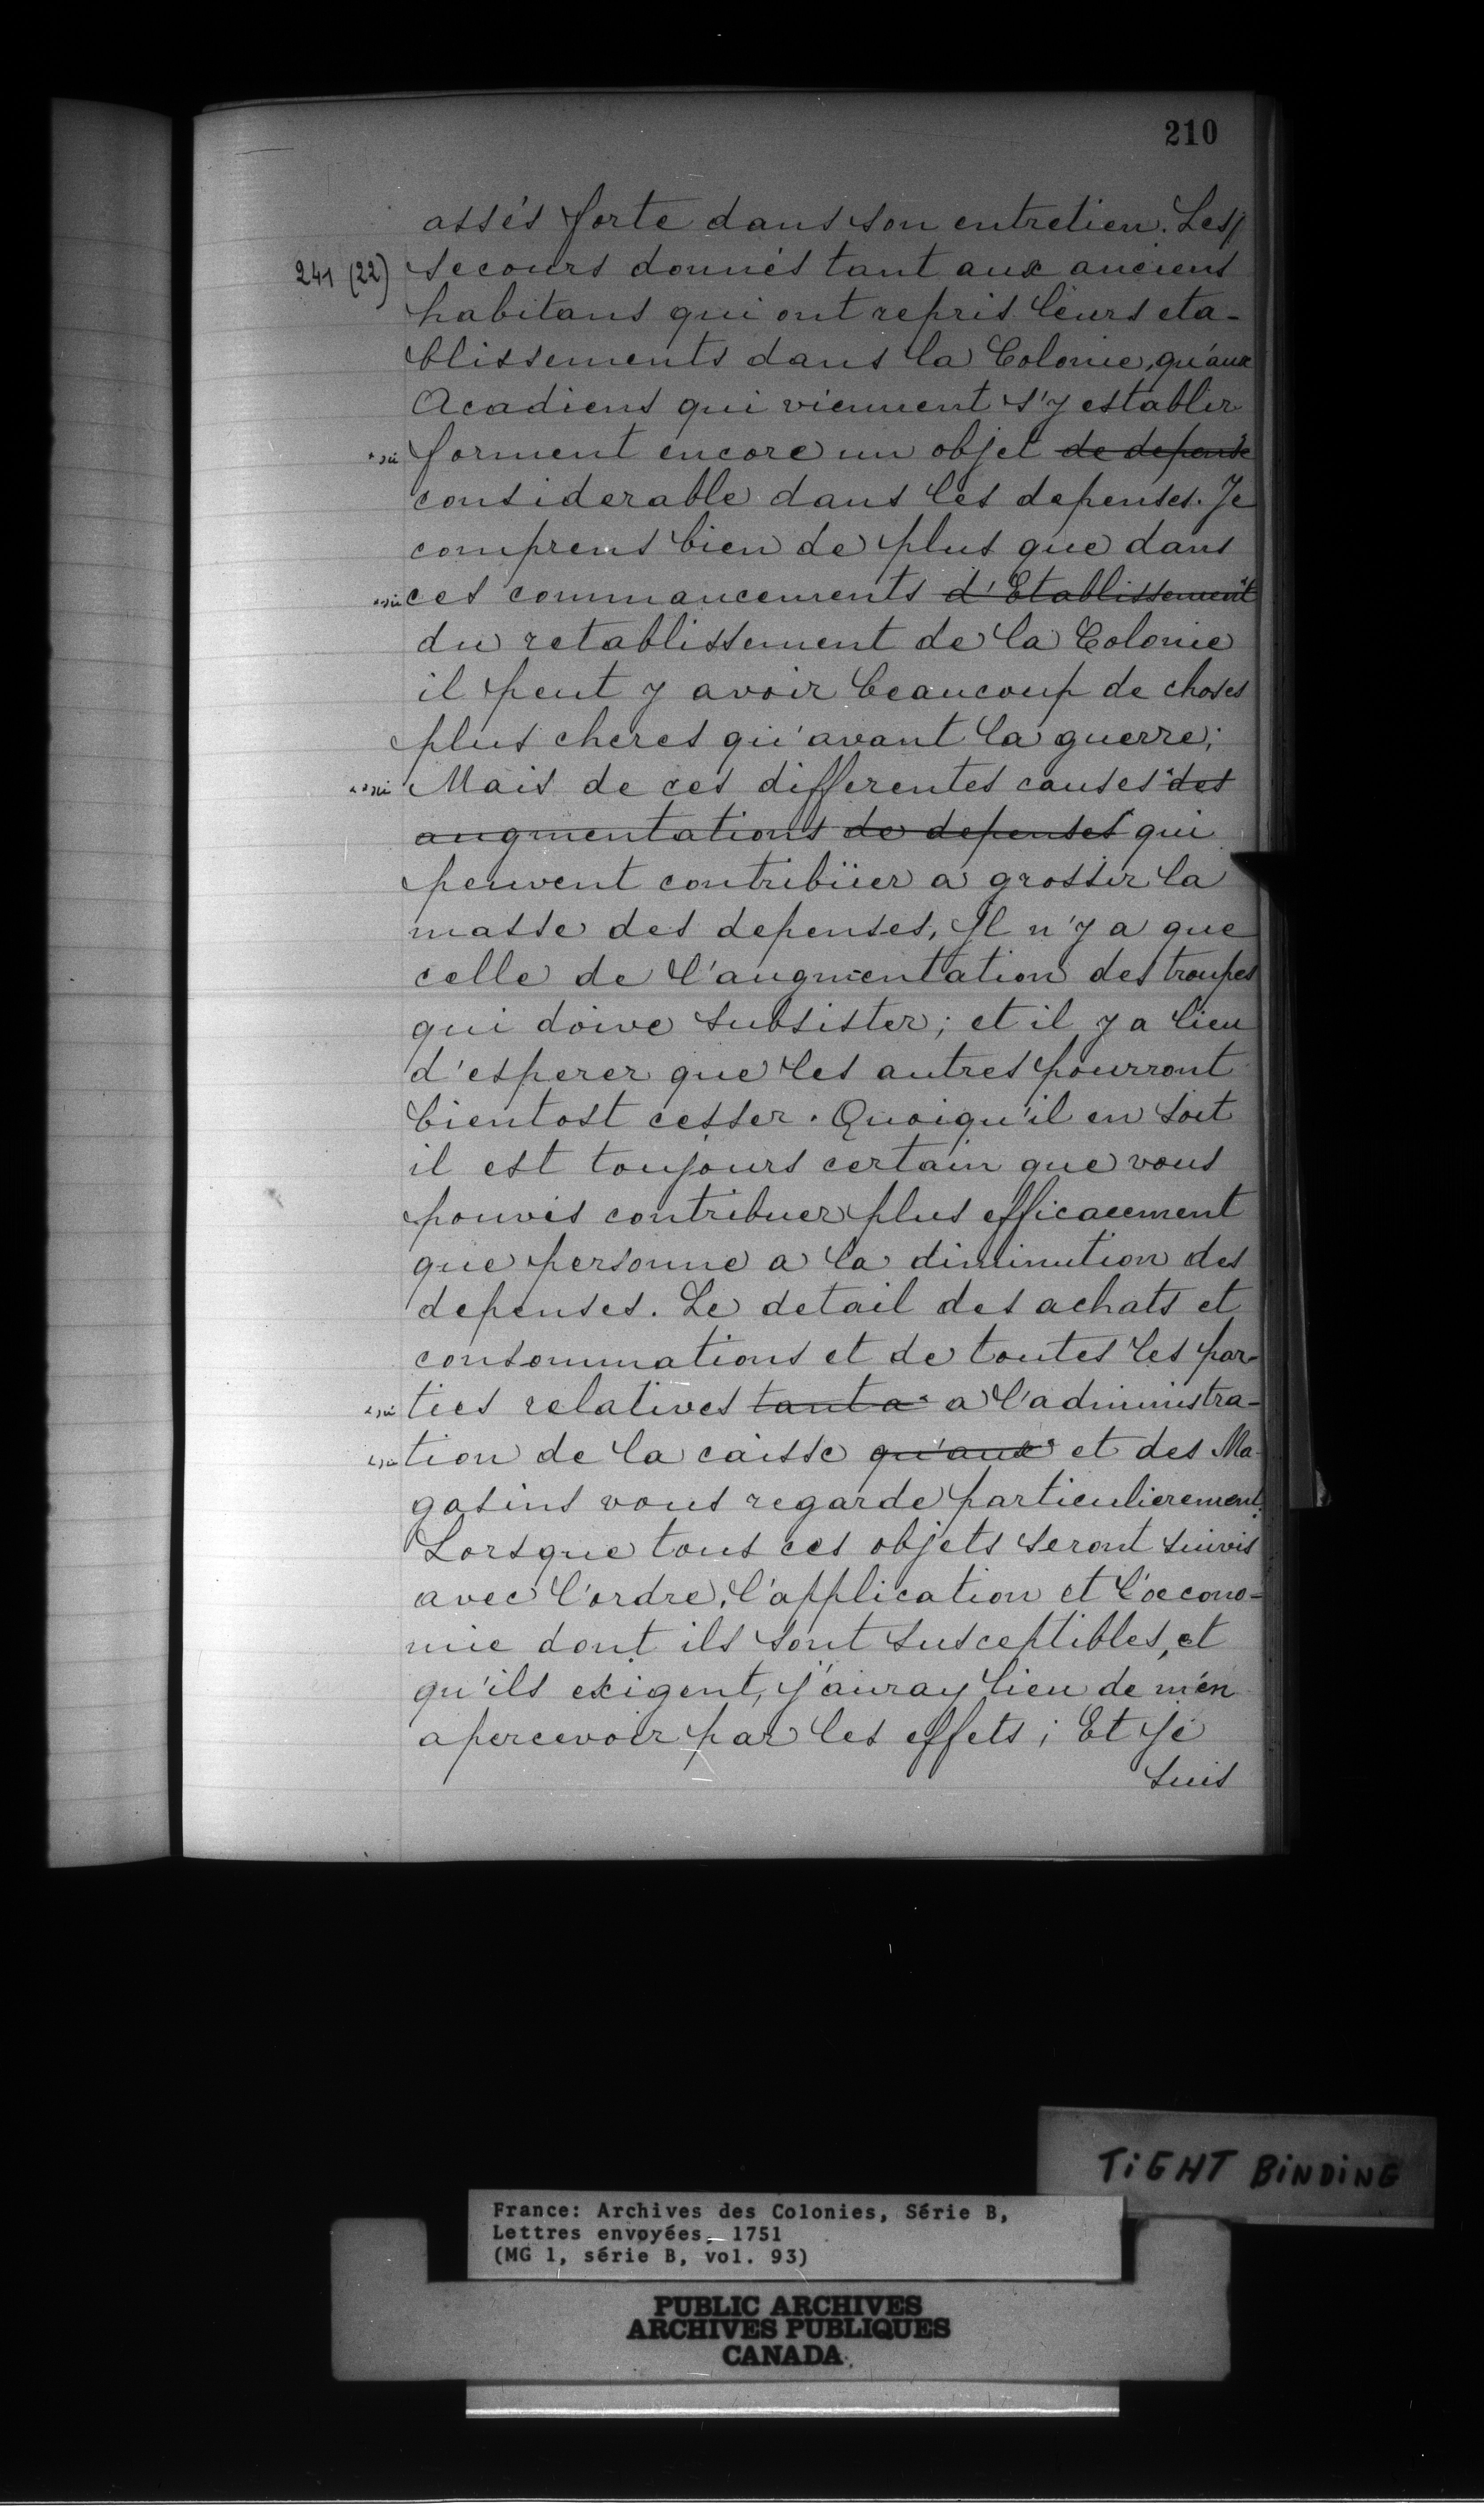 210
assés forte dans son entretien. Les/
241 (22) secours donnés tant aux anciens
habitans qui ont repris leurs eta-
blissements dans la Colonie, qu'aux
Acadiens qui viennent s'y establir
forment encore un objet de depense
considerable dans les depenses. Je
comprens bien de plus que dans
ces commancements d'Etablissement
du retablissement de la Colonie
il peut y avoir beaucoup de choses
plus cheres qu'avant la guerre;
Mais de ces differentes causes des
augmentations de depenses qui
peuvent contribüer a grossir la
masse des depenses, Il n'y a que
celle de l'augmentation des troupes
qui doive subsister; et il y a lieu
d'esperer que les autres pourront
bientost cesser. Quoiqu'il en soit
il est toujours certain que vous
pouvés contribuer plus efficacement
que personne a la diminution des
depenses. Le detail des achats et
consommations et de toutes les par-
ties relatives tant a a l'administra-
tion de la caisse qu'aux et des Ma-
gasins vous regarde particulierement.
Lorsque tous ces objets seront suivis
avec l'ordre, l'application et l'oecono-
mie dont ils sont susceptibles, et
qu'ils exigent, j'auray lieu de m'en
apercevoir par les effets; Et je
suis
TIGHT BINDING
France: Archives des Colonies, Série B,
Lettres envoyées, 1751
(MG 1, série B, vol. 93)
PUBLIC ARCHIVES
ARCHIVES PUBLIQUES
CANADA